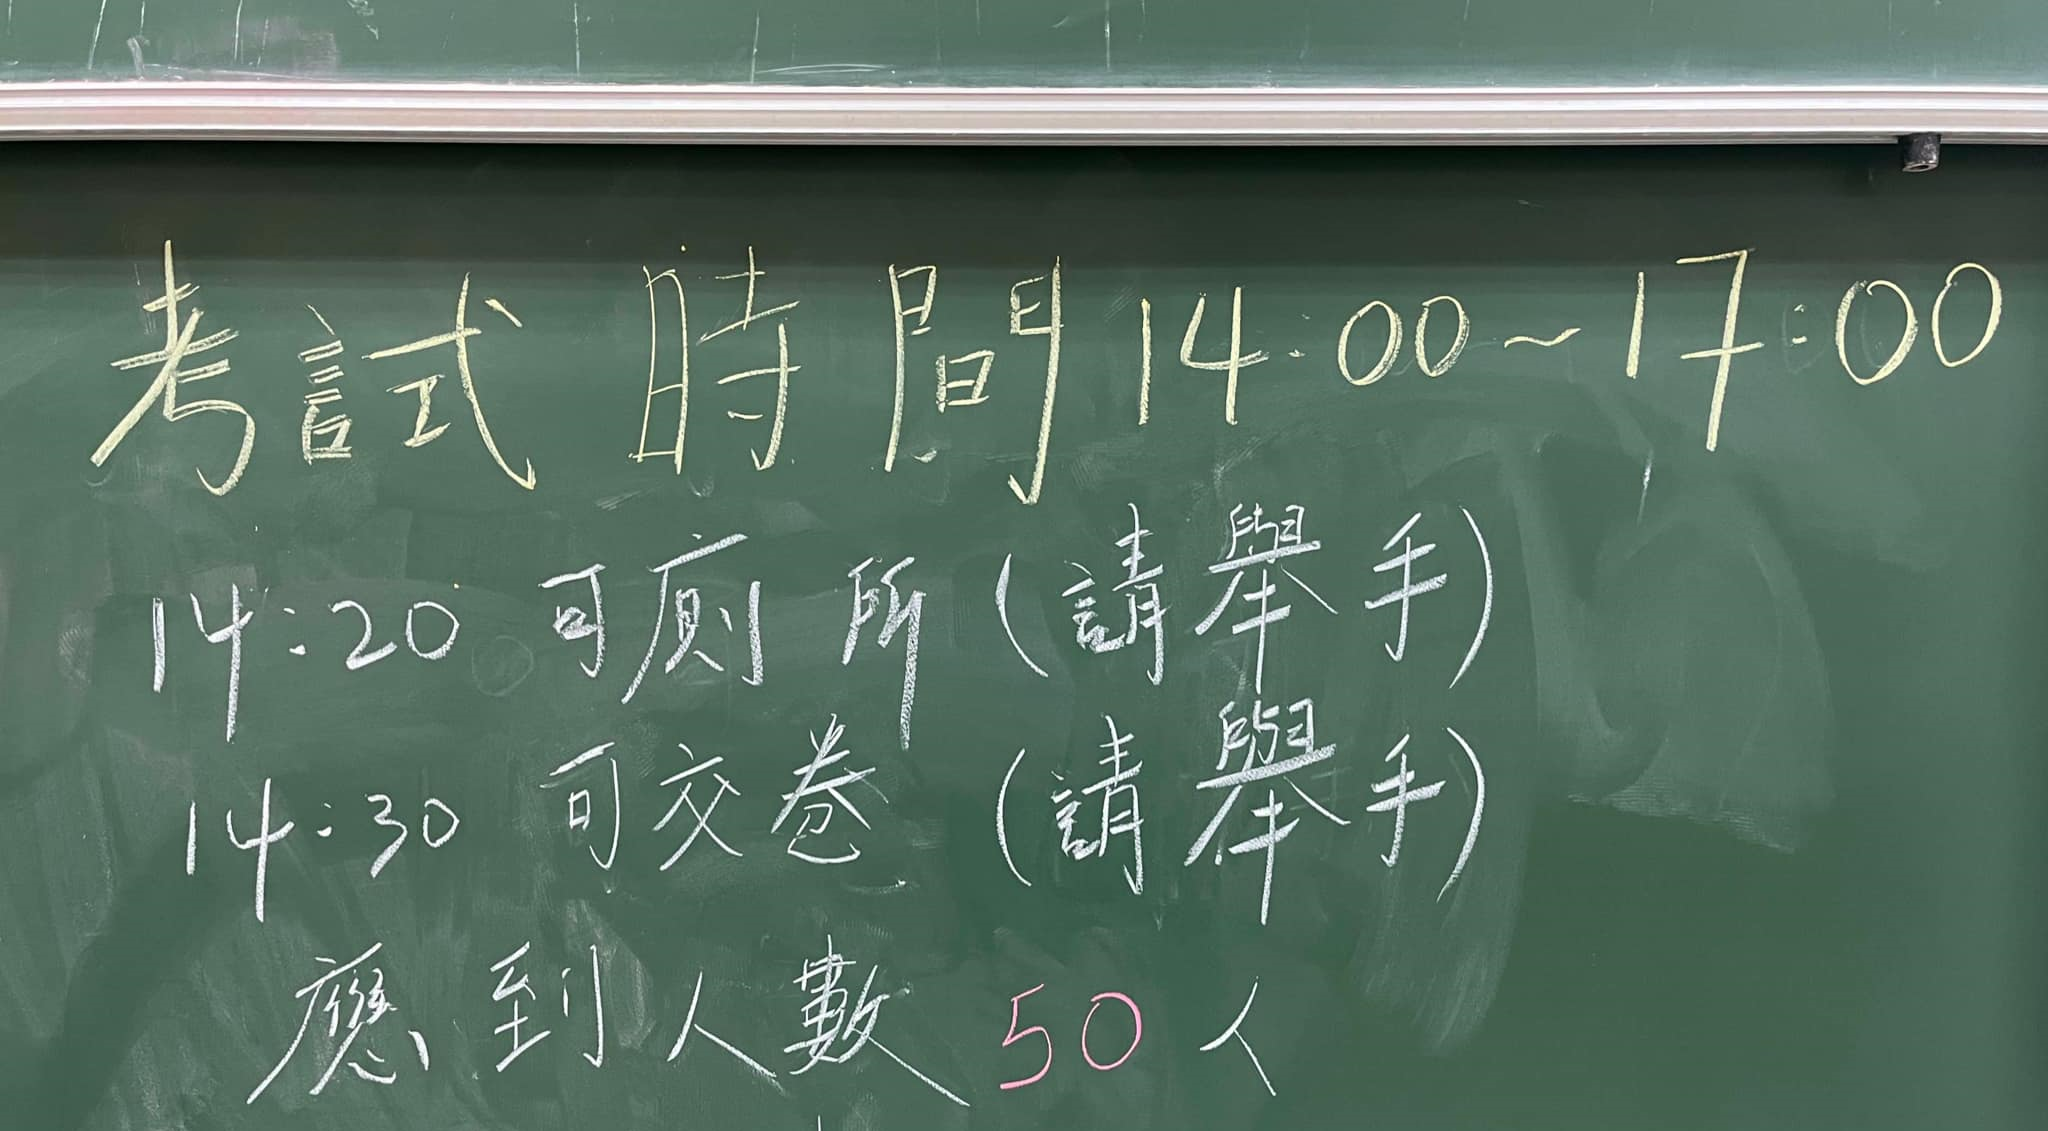 考試時間14:00~17:00
14:20 可廁所(請舉手)
14:30 可交卷(請舉手)
應到人數50人